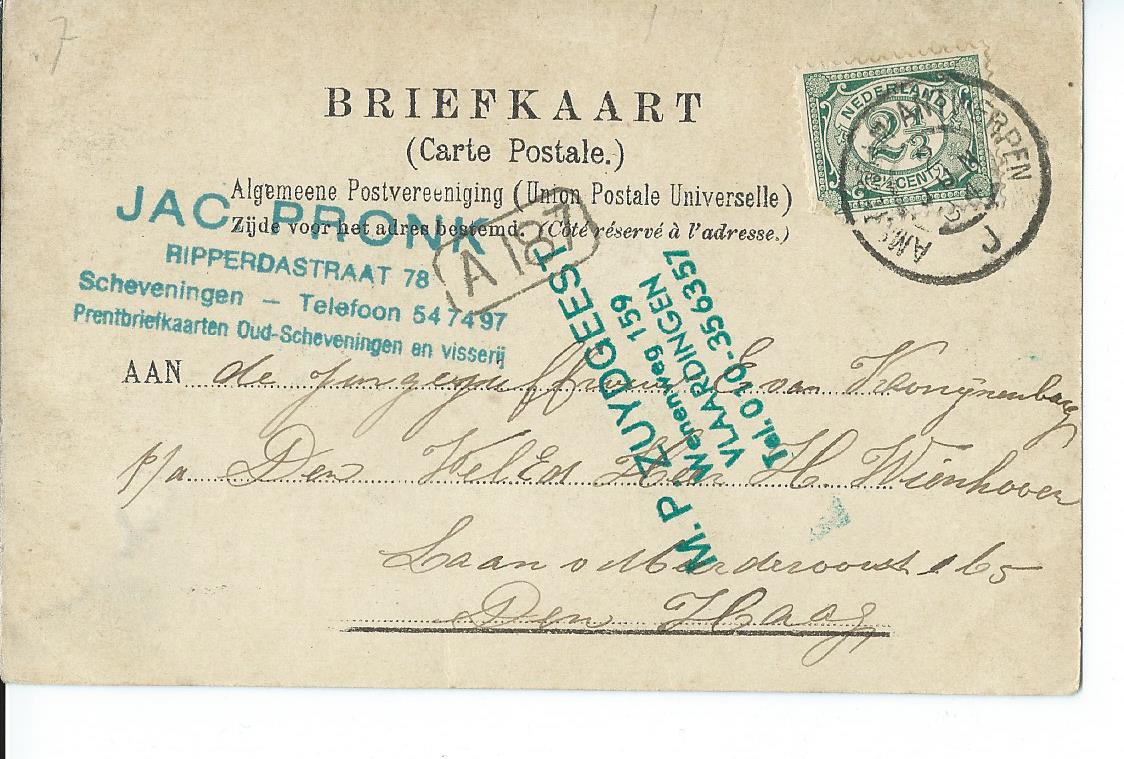 7
BRIEFKAART
(Carte Postale.)
Algemeene Postvereeniging (Union Postale Universelle)
Zijde voor het adres bestemd. (Côté réservé à l'adresse.)
NEDERLAND
2½
2½ CENT
ANTWERPEN
J
JAC. PRONK
RIPPERDASTRAAT 78
Scheveningen — Telefoon 547497
Prentbriefkaarten Oud-Scheveningen en visserij
A 187
M.P. ZUYDGEEST
Wenenweg 159
VLAARDINGEN
Tel. 010-356357
AAN de E van Konijnenburg
p/a Den WelEd Heer H. Wienhoven
Laan v Meerdervoort 165
Den Haag